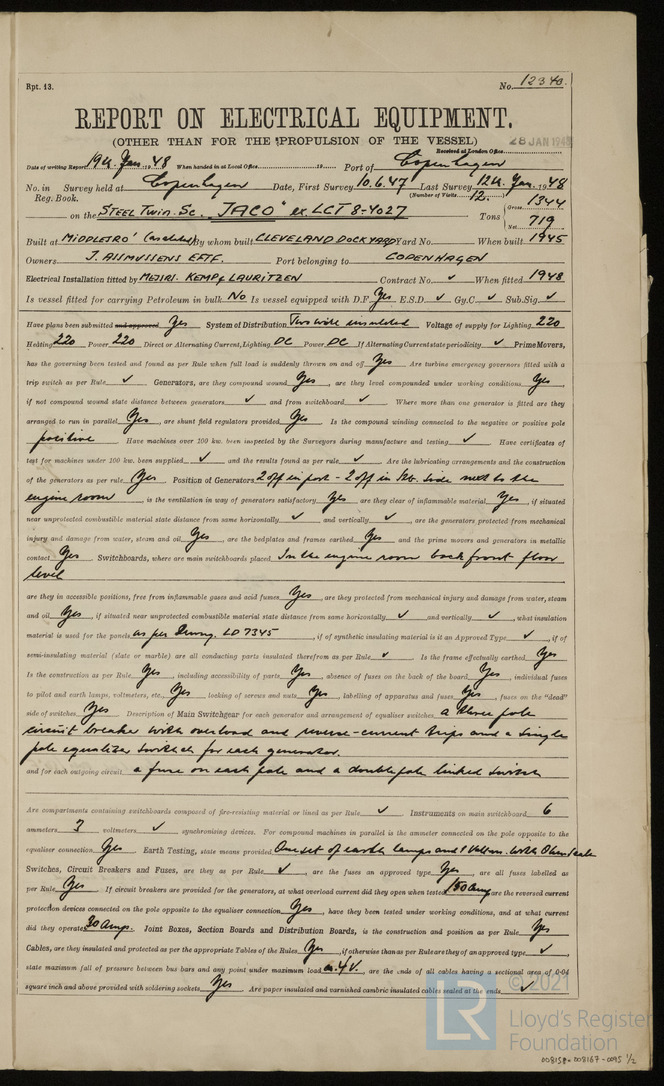 Rpt. 13.
No. 12340.
REPORT ON ELECTRICAL EQUIPMENT.
(OTHER THAN FOR THE PROPULSION OF THE VESSEL)
28 JAN 1948
Received at London Office
Date of writing Report 19th Jan. 1948 When handed in at Local Office 19 Port of Copenhagen
No. in Survey held at Copenhagen Date, First Survey 10.6.47 Last Survey 12th Jan. 1948
Reg. Book. (Number of Visits 12.)
on the STEEL Twin. Sc. "JACO" ex. LCT 8-4027 Tons Gross 1344 Net 719
Built at MIDDLESRO' (as stated) By whom built CLEVELAND DOCKYARD Yard No. When built 1945
Owners J. ASSMUSSENS EFTF. Port belonging to COPENHAGEN
Electrical Installation fitted by MESSRS. KEMP & LAURITZEN Contract No. ✓ When fitted 1948
Is vessel fitted for carrying Petroleum in bulk No Is vessel equipped with D.F. Yes E.S.D. ✓ Gy.C. ✓ Sub.Sig. ✓
Have plans been submitted and approved Yes System of Distribution Two wire insulated Voltage of supply for Lighting 220
Heating 220 Power 220 Direct or Alternating Current, Lighting DC Power DC If Alternating Current state periodicity ✓ Prime Movers,
has the governing been tested and found as per Rule when full load is suddenly thrown on and off Yes Are turbine emergency governors fitted with a
trip switch as per Rule ✓ Generators, are they compound wound Yes, are they level compounded under working conditions Yes,
if not compound wound state distance between generators ✓ and from switchboard ✓ Where more than one generator is fitted are they
arranged to run in parallel Yes, are shunt field regulators provided Yes. Is the compound winding connected to the negative or positive pole
positive. Have machines over 100 kw. been inspected by the Surveyors during manufacture and testing ✓ Have certificates of
test for machines under 100 kw. been supplied ✓ and the results found as per rule ✓ Are the lubricating arrangements and the construction
of the generators as per rule Yes Position of Generators 2 off in port - 2 off in Stb. side next to the
engine room, is the ventilation in way of generators satisfactory Yes are they clear of inflammable material Yes, if situated
near unprotected combustible material state distance from same horizontally ✓ and vertically ✓, are the generators protected from mechanical
injury and damage from water, steam and oil Yes, are the bedplates and frames earthed Yes and the prime movers and generators in metallic
contact Yes Switchboards, where are main switchboards placed In the engine room back front floor
level
are they in accessible positions, free from inflammable gases and acid fumes Yes, are they protected from mechanical injury and damage from water, steam
and oil Yes, if situated near unprotected combustible material state distance from same horizontally ✓ and vertically ✓, what insulation
material is used for the panels as per Drwng. LD 7345, if of synthetic insulating material is it an Approved Type ✓, if of
semi-insulating material (slate or marble) are all conducting parts insulated therefrom as per Rule ✓ Is the frame effectually earthed Yes
Is the construction as per Rule Yes, including accessibility of parts Yes, absence of fuses on the back of the board Yes, individual fuses
to pilot and earth lamps, voltmeters, etc., Yes locking of screws and nuts Yes, labelling of apparatus and fuses Yes, fuses on the "dead"
side of switches Yes Description of Main Switchgear for each generator and arrangement of equaliser switches a three pole
circuit breaker with overload and reverse-current trips and a single
pole equalizer switch for each generator.
and for each outgoing circuit a fuse on each pole and a double pole linked switch
Are compartments containing switchboards composed of fire-resisting material or lined as per Rule ✓ Instruments on main switchboard 6
ammeters 3 voltmeters ✓ synchronising devices. For compound machines in parallel is the ammeter connected on the pole opposite to the
equaliser connection Yes Earth Testing, state means provided One set of earth lamps and 1 Voltm. with Ohm scale
Switches, Circuit Breakers and Fuses, are they as per Rule ✓, are the fuses an approved type Yes, are all fuses labelled as
per Rule Yes If circuit breakers are provided for the generators, at what overload current did they open when tested 150 Amp are the reversed current
protection devices connected on the pole opposite to the equaliser connection Yes, have they been tested under working conditions, and at what current
did they operate 30 Amps. Joint Boxes, Section Boards and Distribution Boards, is the construction and position as per Rule Yes
Cables, are they insulated and protected as per the appropriate Tables of the Rules Yes, if otherwise than as per Rule are they of an approved type ✓,
state maximum fall of pressure between bus bars and any point under maximum load 4 V. are the ends of all cables having a sectional area of 0.04
square inch and above provided with soldering sockets Yes Are paper insulated and varnished cambric insulated cables sealed at the ends ✓
LR
© 2021
Lloyd's Register
Foundation
008158-008167-0095 1/2